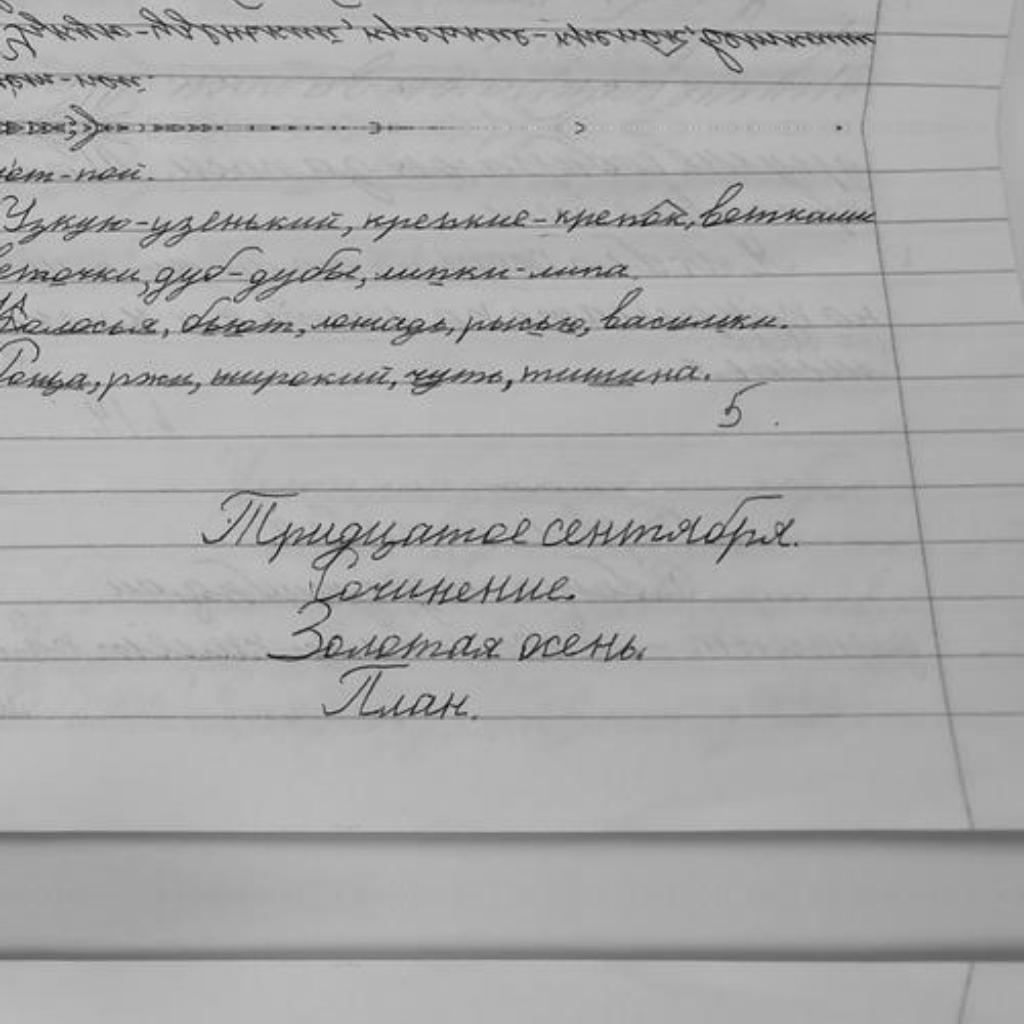 ют-пой.
Узкую-узенький, крепкие-крепок, ветками
веточки, дуб-дубы, липки-липа
Колосья, бьют, лошадь, рысью, васильки.
Роща, ржи, широкий, чуть, тишина.
5.
Тридцатое сентября.
Сочинение.
Золотая осень.
План.